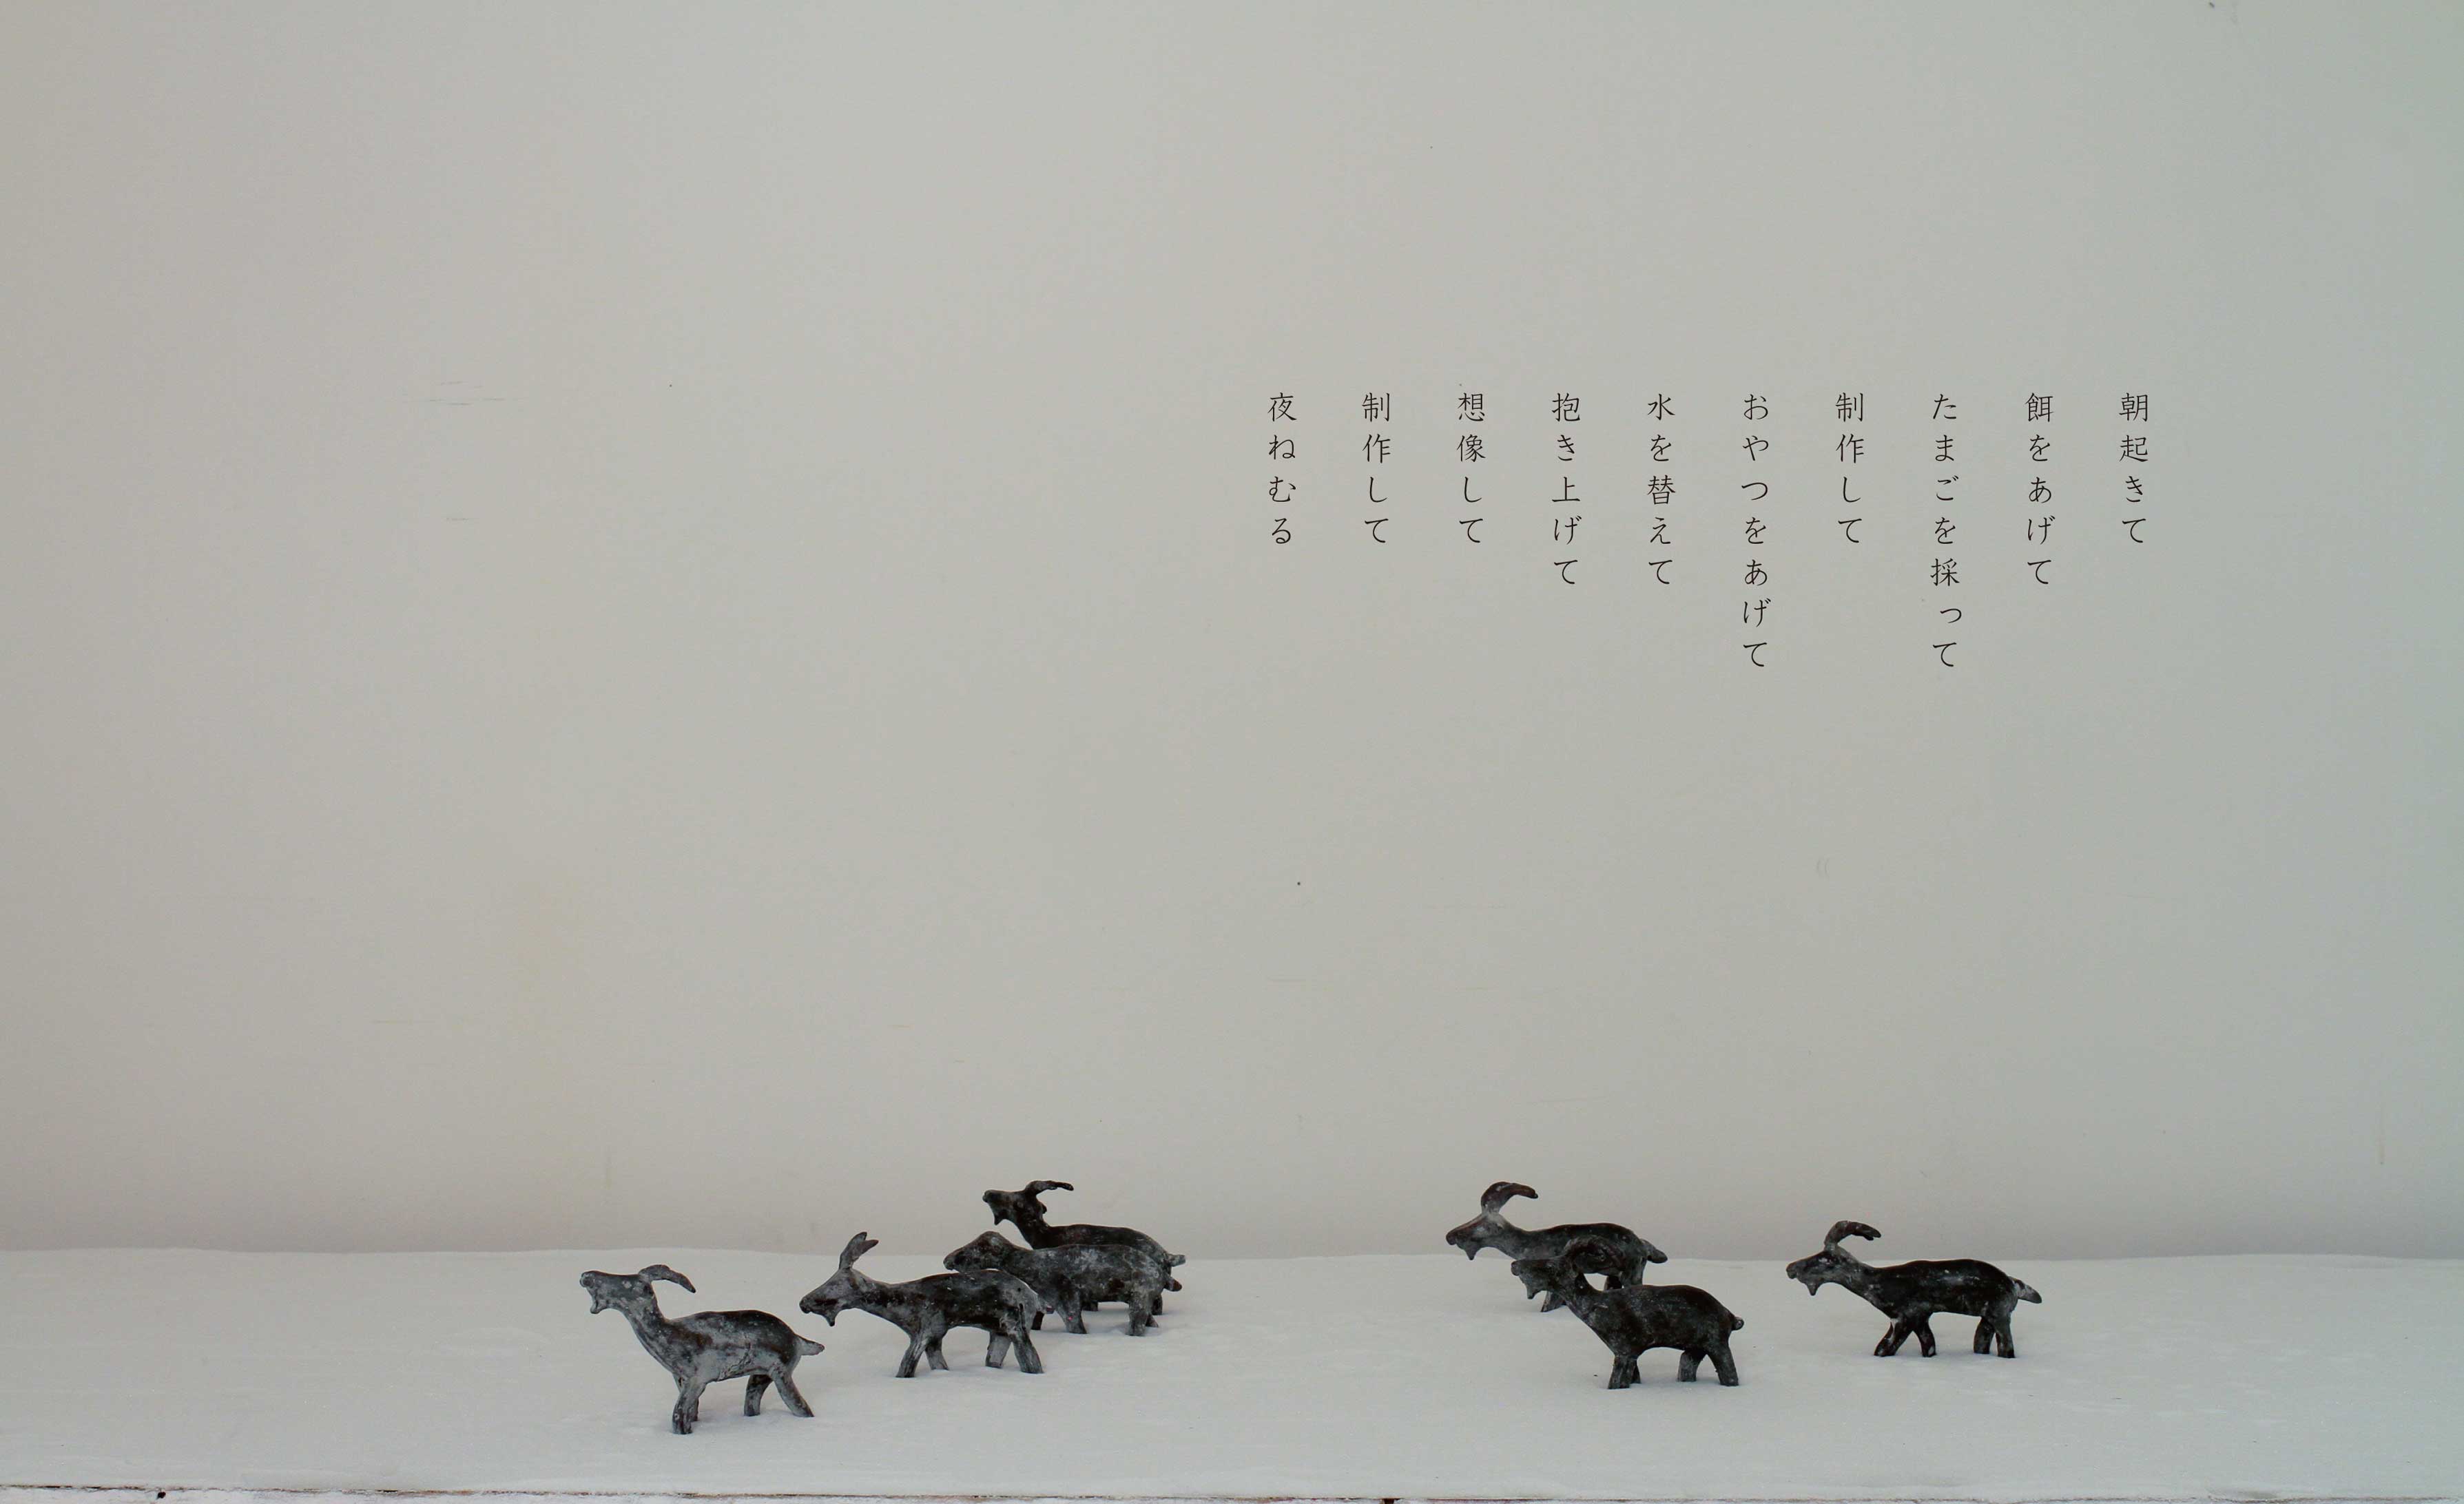 朝起きて
餌をあげて
たまごを採って
制作して
おやつをあげて
水を替えて
抱き上げて
想像して
制作して
夜ねむる